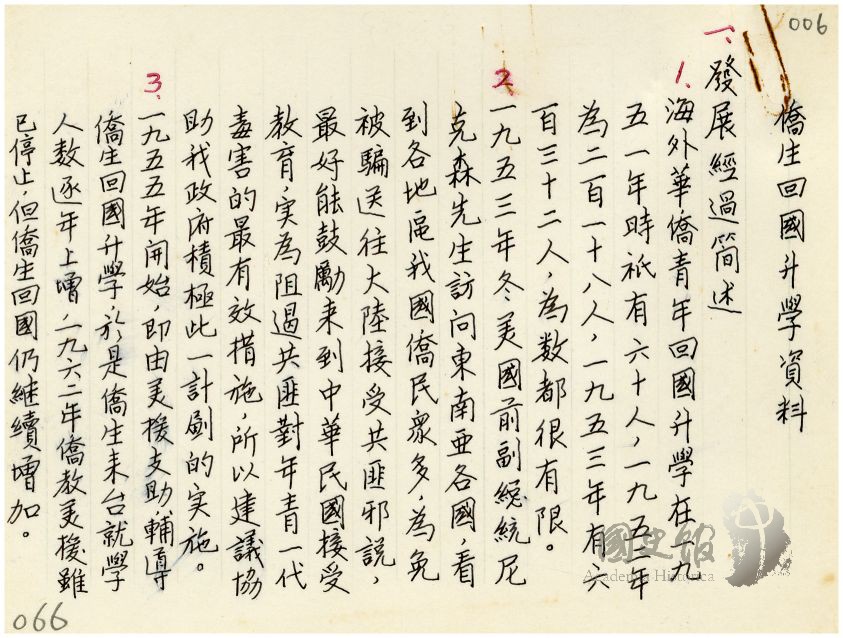 006
僑生回國升學資料
一、發展經過简述
1. 海外華僑青年回國升學在一九
五一年時祇有六十人，一九五二年
為二百一十八人，一九五三年有六
百三十二人，為数都很有限。
2. 一九五三年冬美國前副總統尼
克森先生訪问東南亜各國，看
到各地區我國僑民眾多，為免
被騙送往大陸接受共匪邪説，
最好能鼓勵来到中華民國接受
教育，实為阻遏共匪對年青一代
毒害的最有效措施，所以建議協
助我政府積極此一計劃的实施。
3. 一九五五年開始，即由美援支助，輔導
僑生回國升學於是僑生来台就學
人数逐年上增，一九六二年僑教美援雖
已停止，但僑生回國仍継續增加。
國史館
Academia Historica
066